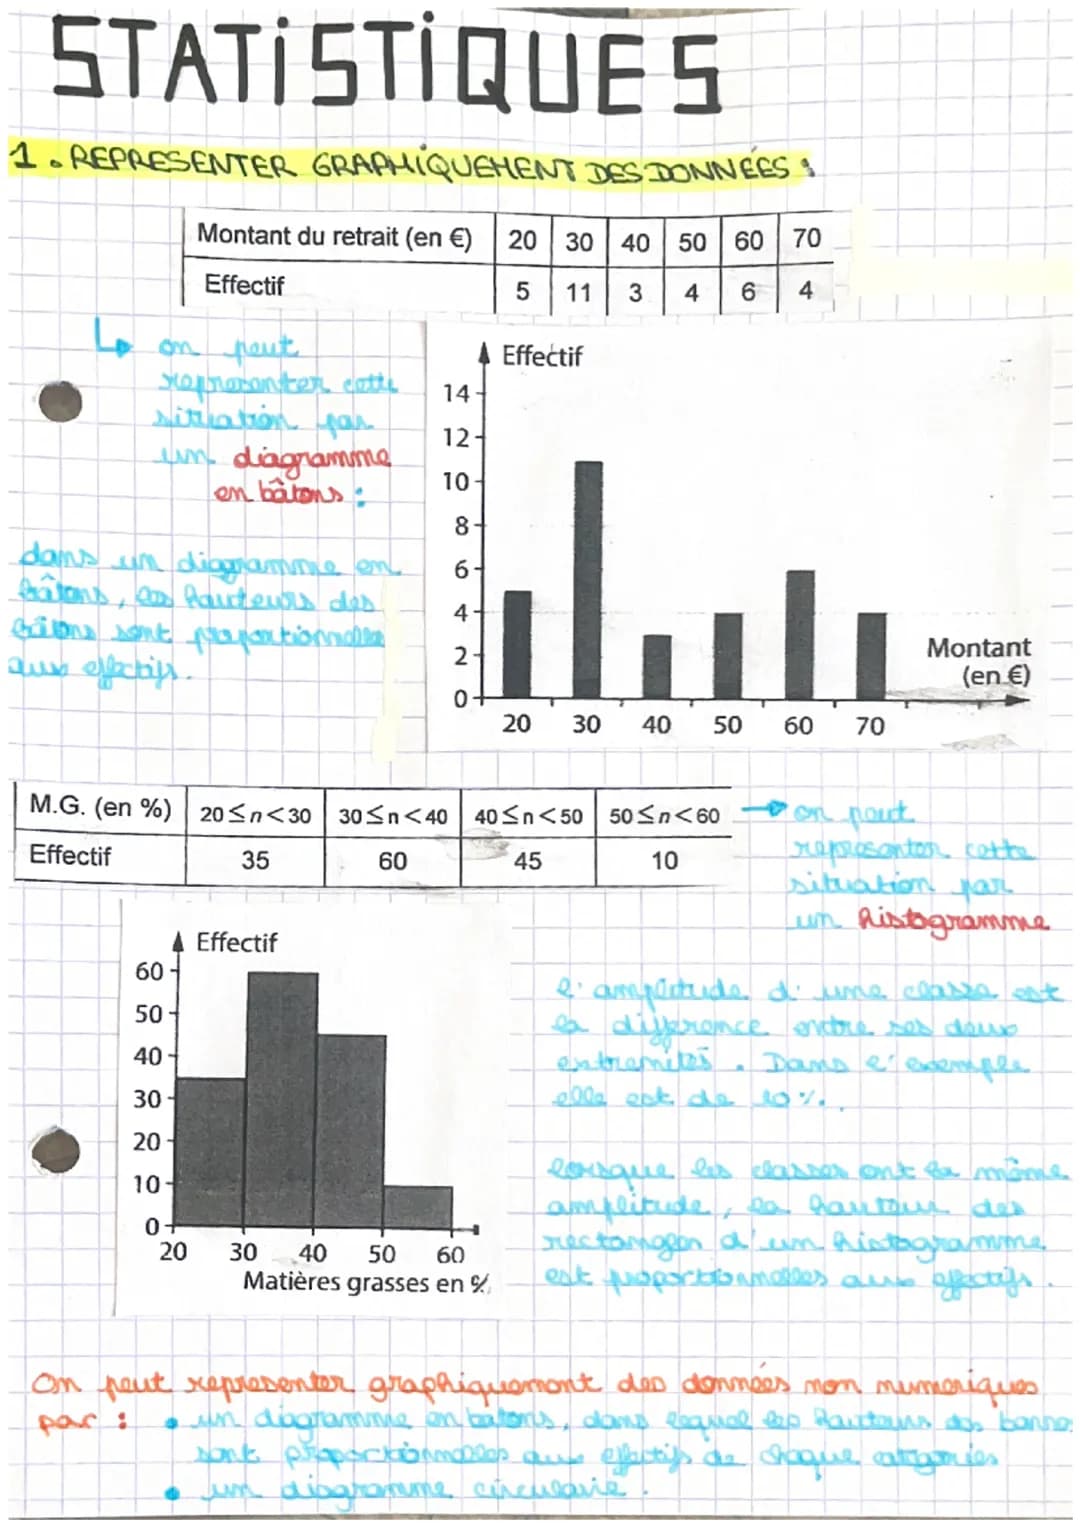 STATiSTiQUES
1. REPRESENTER GRAPHiQUEMENT DES DONNÉES :
Montant du retrait (en €) 20 30 40 50 60 70
Effectif 5 11 3 4 6 4
↳ on peut
representer cette
situation par
un diagramme
en bâtons :
dans un diagramme en
bâtons, les hauteurs des
bâtons sont proportionnelles
aux effectifs.
Effectif
14
12
10
8
6
4
2
0
20 30 40 50 60 70
Montant
(en €)
M.G. (en %) 20≤n<30 30≤n<40 40≤n<50 50≤n<60
Effectif 35 60 45 10
→ on peut
representer cette
situation par
un histogramme
Effectif
60
50
40
30
20
10
0
20 30 40 50 60
Matières grasses en %
l'amplitude d'une classe est
la difference entre ses deux
extremités. Dans l'exemple
elle est de 10%.
lorsque les classes ont la même
amplitude, la hauteur des
rectangles d'un histogramme
est proportionnelles aux effectifs.
On peut representer graphiquement des données non numeriques
par : • un diagramme en batons, dans lequel les hauteurs des barres
sont proportionnelles aux effectifs de chaque catégories
• un diagramme circulaire.